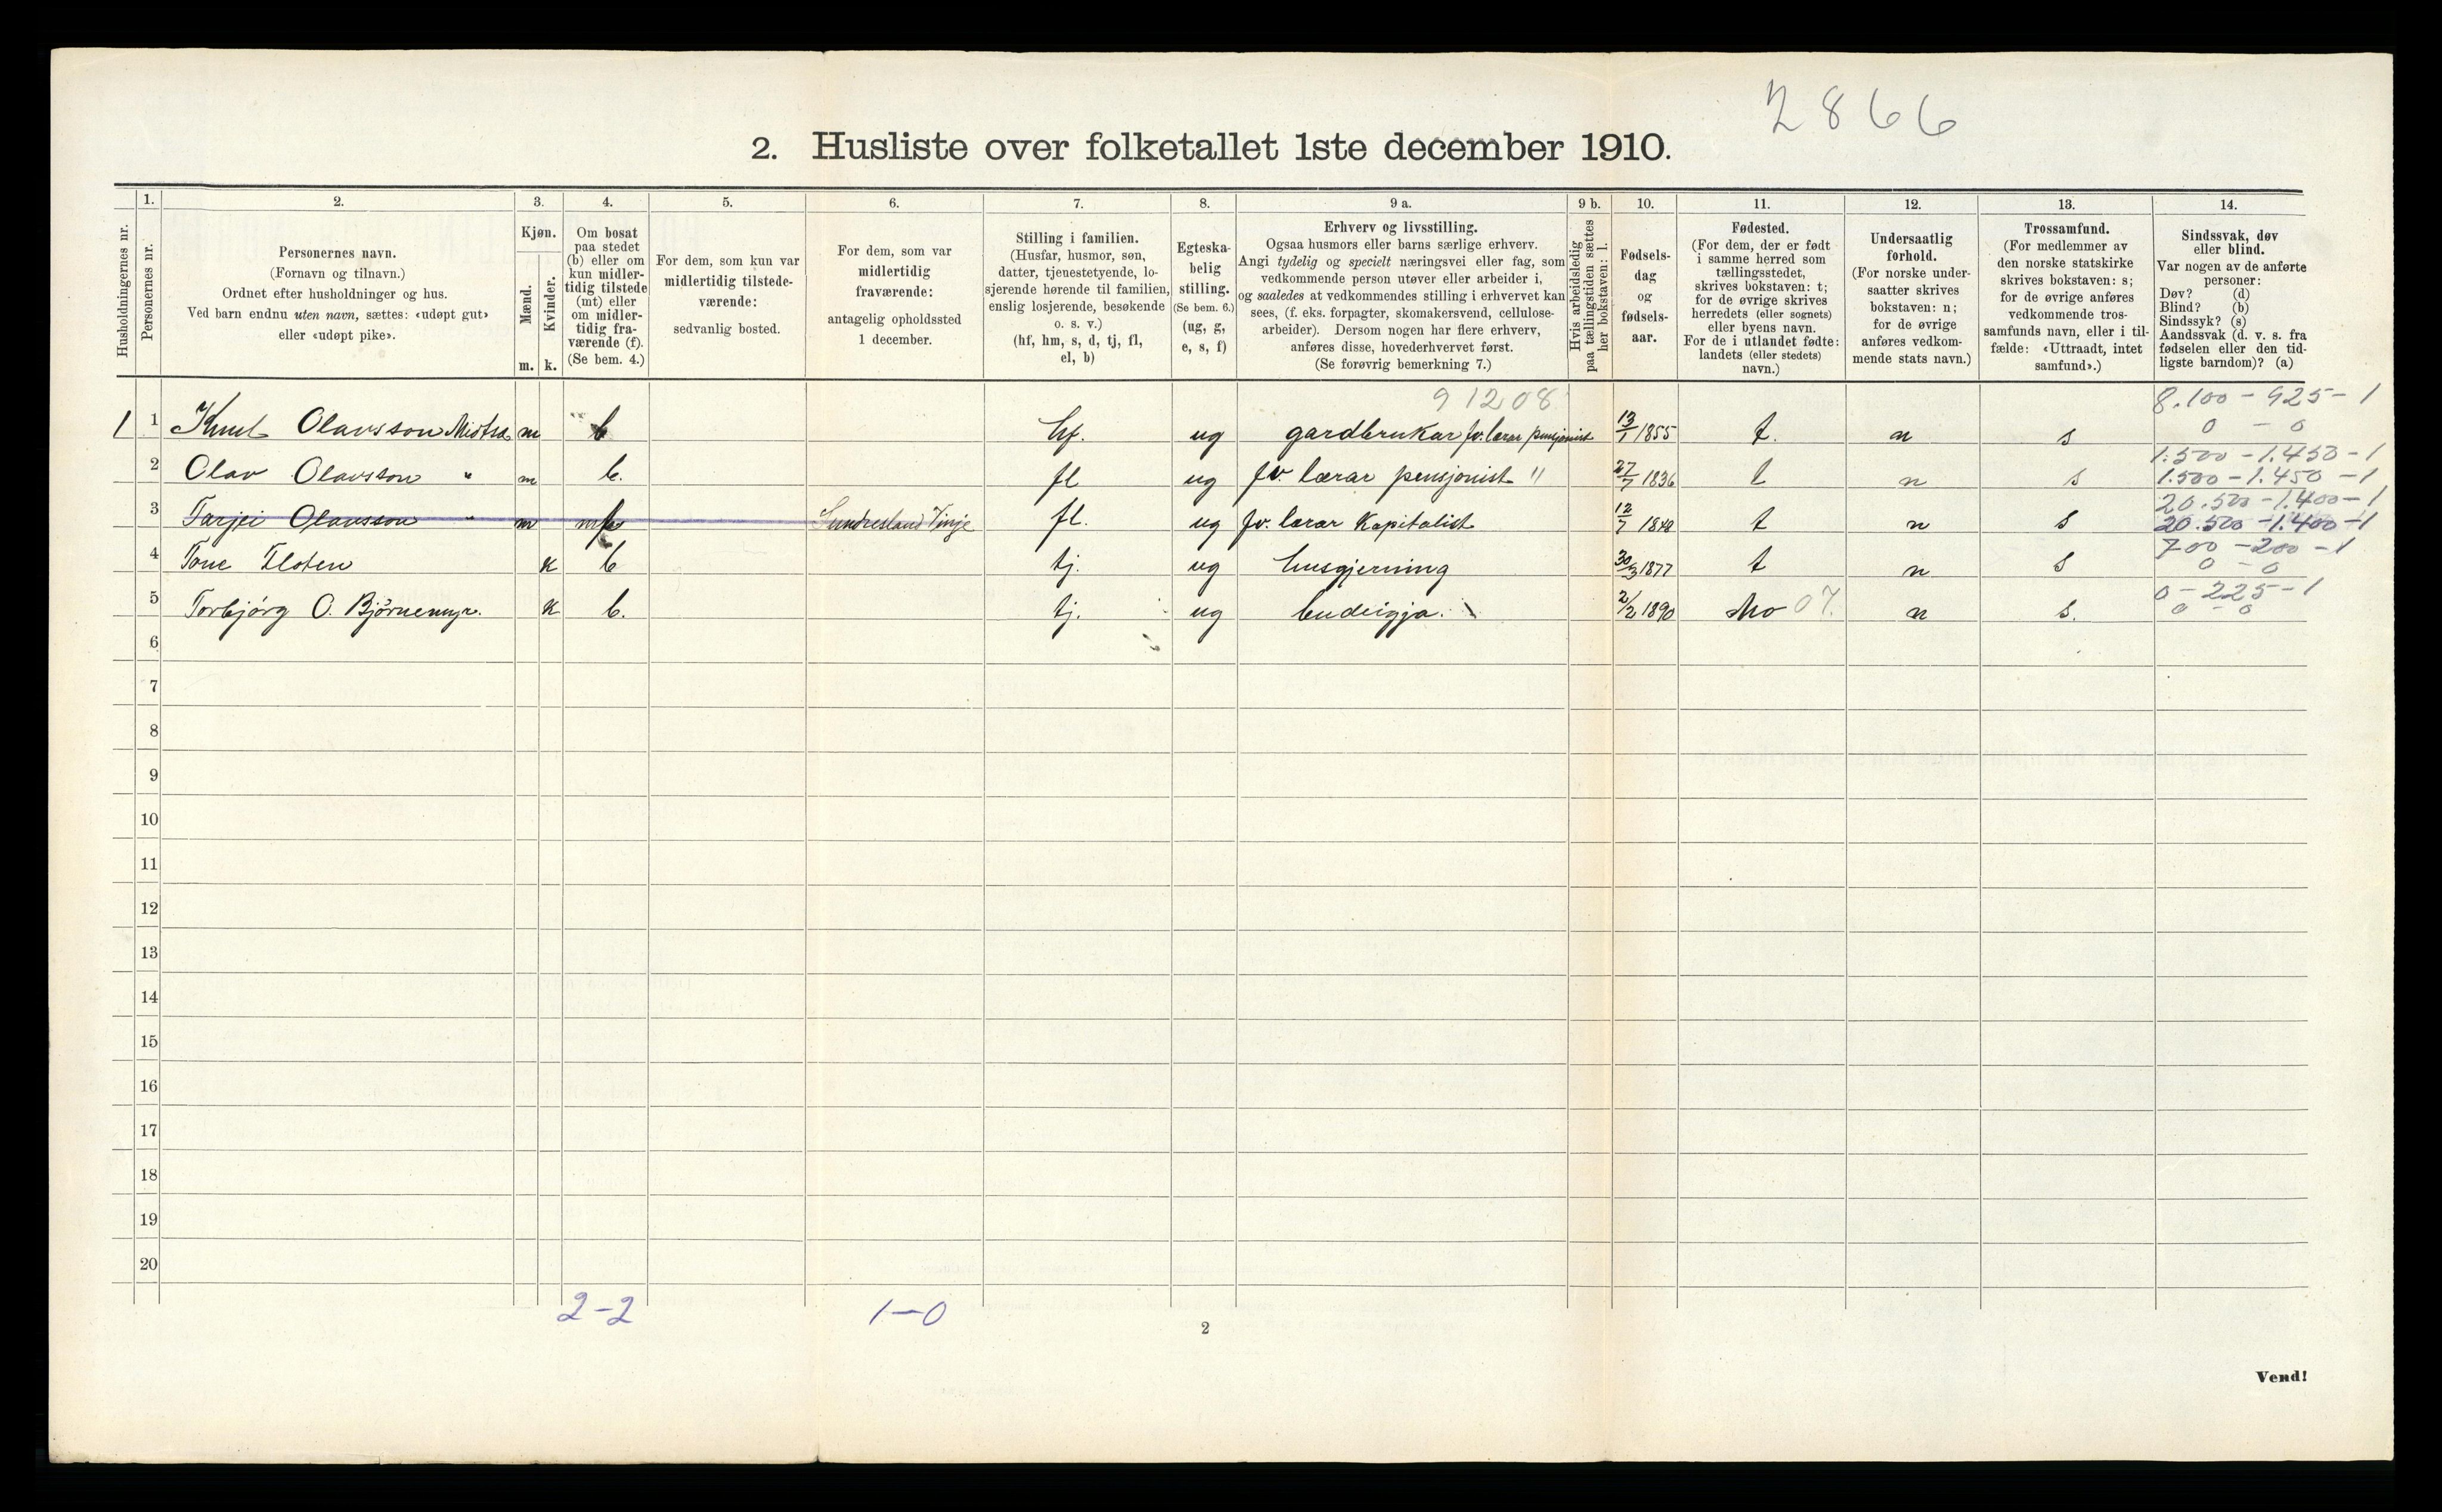 2866
2. Husliste over folketallet 1ste december 1910.
Husholdningernes nr.
1.
Personernes nr.
2.
Personernes navn.
(Fornavn og tilnavn.)
Ordnet efter husholdninger og hus.
Ved barn endnu uten navn, sættes: «udøpt gut»
eller «udøpt pike».
3.
Kjøn.
Mænd.
Kvinder.
m. k.
4.
Om bosat
paa stedet
(b) eller om
kun midler-
tidig tilstede
(mt) eller
om midler-
tidig fra-
værende (f).
(Se bem. 4.)
5.
For dem, som kun var
midlertidig tilstede-
værende:
sedvanlig bosted.
6.
For dem, som var
midlertidig
fraværende:
antagelig opholdssted
1 december.
7.
Stilling i familien.
(Husfar, husmor, søn,
datter, tjenestetyende, lo-
sjerende hørende til familien,
enslig losjerende, besøkende
o. s. v.)
(hf, hm, s, d, tj, fl,
el, b)
8.
Egteska-
belig
stilling.
(Se bem. 6.)
(ug, g,
e, s, f)
9 a.
Erhverv og livsstilling.
Ogsaa husmors eller barns særlige erhverv.
Angi tydelig og specielt næringsvei eller fag, som
vedkommende person utøver eller arbeider i,
og saaledes at vedkommendes stilling i erhvervet kan
sees, (f. eks. forpagter, skomakersvend, cellulose-
arbeider). Dersom nogen har flere erhverv,
anføres disse, hovederhvervet først.
(Se forøvrig bemerkning 7.)
9 b.
Hvis arbeidsledig
paa tællingstiden sættes
her bokstaven: l.
10.
Fødsels-
dag
og
fødsels-
aar.
11.
Fødested.
(For dem, der er født
i samme herred som
tællingsstedet,
skrives bokstaven: t;
for de øvrige skrives
herredets (eller sognets)
eller byens navn.
For de i utlandet fødte:
landets (eller stedets)
navn.)
12.
Undersaatlig
forhold.
(For norske under-
saatter skrives
bokstaven: n;
for de øvrige
anføres vedkom-
mende stats navn.)
13.
Trossamfund.
(For medlemmer av
den norske statskirke
skrives bokstaven: s;
for de øvrige anføres
vedkommende tros-
samfunds navn, eller i til-
fælde: «Uttraadt, intet
samfund».)
14.
Sindssvak, døv
eller blind.
Var nogen av de anførte
personer:
Døv? (d)
Blind? (b)
Sindssyk? (s)
Aandssvak (d. v. s. fra
fødselen eller den tid-
ligste barndom)? (a)
91208 8.100 - 925 - 1
1 1 Knut Olavsson m b hf. ug gardbrukar fv. lærar pensjonist 13/1 1855 t. n s 0 - 0
1.500 - 1.450 - 1
2 Olav Olavsson " m b. fl ug fv. lærar pensjonist " 27/7 1836 t n s 1.500 - 1.450 - 1
20.500 - 1.400 - 1
3 Tarjei Olavsson " m Vinje fl. ug fv. lærar Kapitalist 12/7 1848 t n s 20.500 - 1.400 - 1
700 - 200 - 1
4 Tone Floten k b tj. ug husgjerning 30/3 1877 t n s 0 - 0
0 - 225 - 1
5 Torbjórg O. Bjørnemyr. k b. tj. ug budeigja. 2/2 1890 Mo 07. n s. 0 - 0
6
7
8
9
10
11
12
13
14
15
16
17
18
19
20
2-2 1-0
2
Vend!